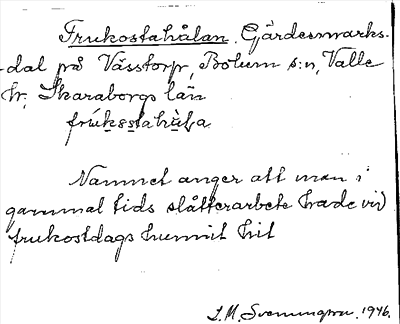 Frukostahålan. Gärdesmarks-
dal på Västorp, Bolum s:n, Valle
hr, Skaraborgs län
Namnet anger att man i
gammal tids slåtterarbete hade vid
frukostdags hunnit hit
S.M. Svenungsson. 1946.